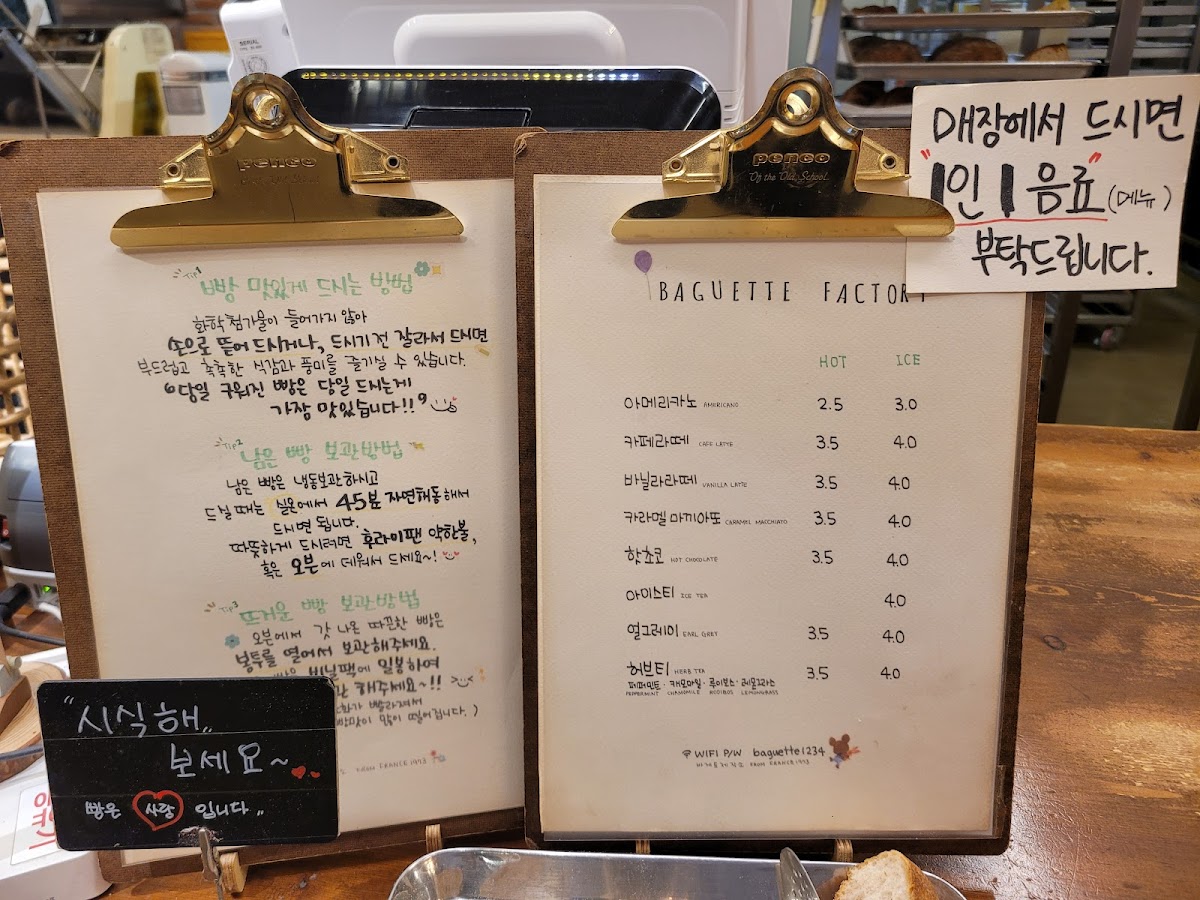 SERIAL
penco
Tip1
빵 맛있게 드시는 방법
화학첨가물이 들어가지 않아
손으로 뜯어 드시거나, 드시기 전 잘라서 드시면
부드럽고 촉촉한 식감과 풍미를 즐기실 수 있습니다.
"당일 구워진 빵은 당일 드시는게
가장 맛있습니다!!"
Tip2
남은 빵 보관방법
남은 빵은 냉동보관하시고
드실 때는 실온에서 45분 자연해동해서
드시면 됩니다.
따뜻하게 드시려면 후라이팬 약한불,
혹은 오븐에 데워서 드세요~!
Tip3
뜨거운 빵 보관방법
오븐에서 갓 나온 따끈한 빵은
봉투를 열어서 보관해주세요.
빵은 비닐팩에 밀봉하여
해주세요~!!
화가 빨라져서
빵맛이 많이 떨어집니다.)
FROM FRANCE 1973
"시식해"
보세요~
빵은 사랑 입니다"
penco
Of the Old School
BAGUETTE FACTORY
HOT ICE
아메리카노 AMERICANO 2.5 3.0
카페라떼 CAFE LATTE 3.5 4.0
바닐라라떼 VANILLA LATTE 3.5 4.0
카라멜 마끼아또 CARAMEL MACCHIATO 3.5 4.0
핫초코 HOT CHOCOLATE 3.5 4.0
아이스티 ICE TEA 4.0
얼그레이 EARL GREY 3.5 4.0
허브티 HERB TEA 3.5 4.0
페퍼민트 · 캐모마일 · 루이보스 · 레몬그라스
PEPPERMINT CHAMOMILE ROOIBOS LEMONGRASS
WIFI P/W baguette1234
바게트제작소 FROM FRANCE 1973
매장에서 드시면
"1인 1 음료"(메뉴)
부탁드립니다.